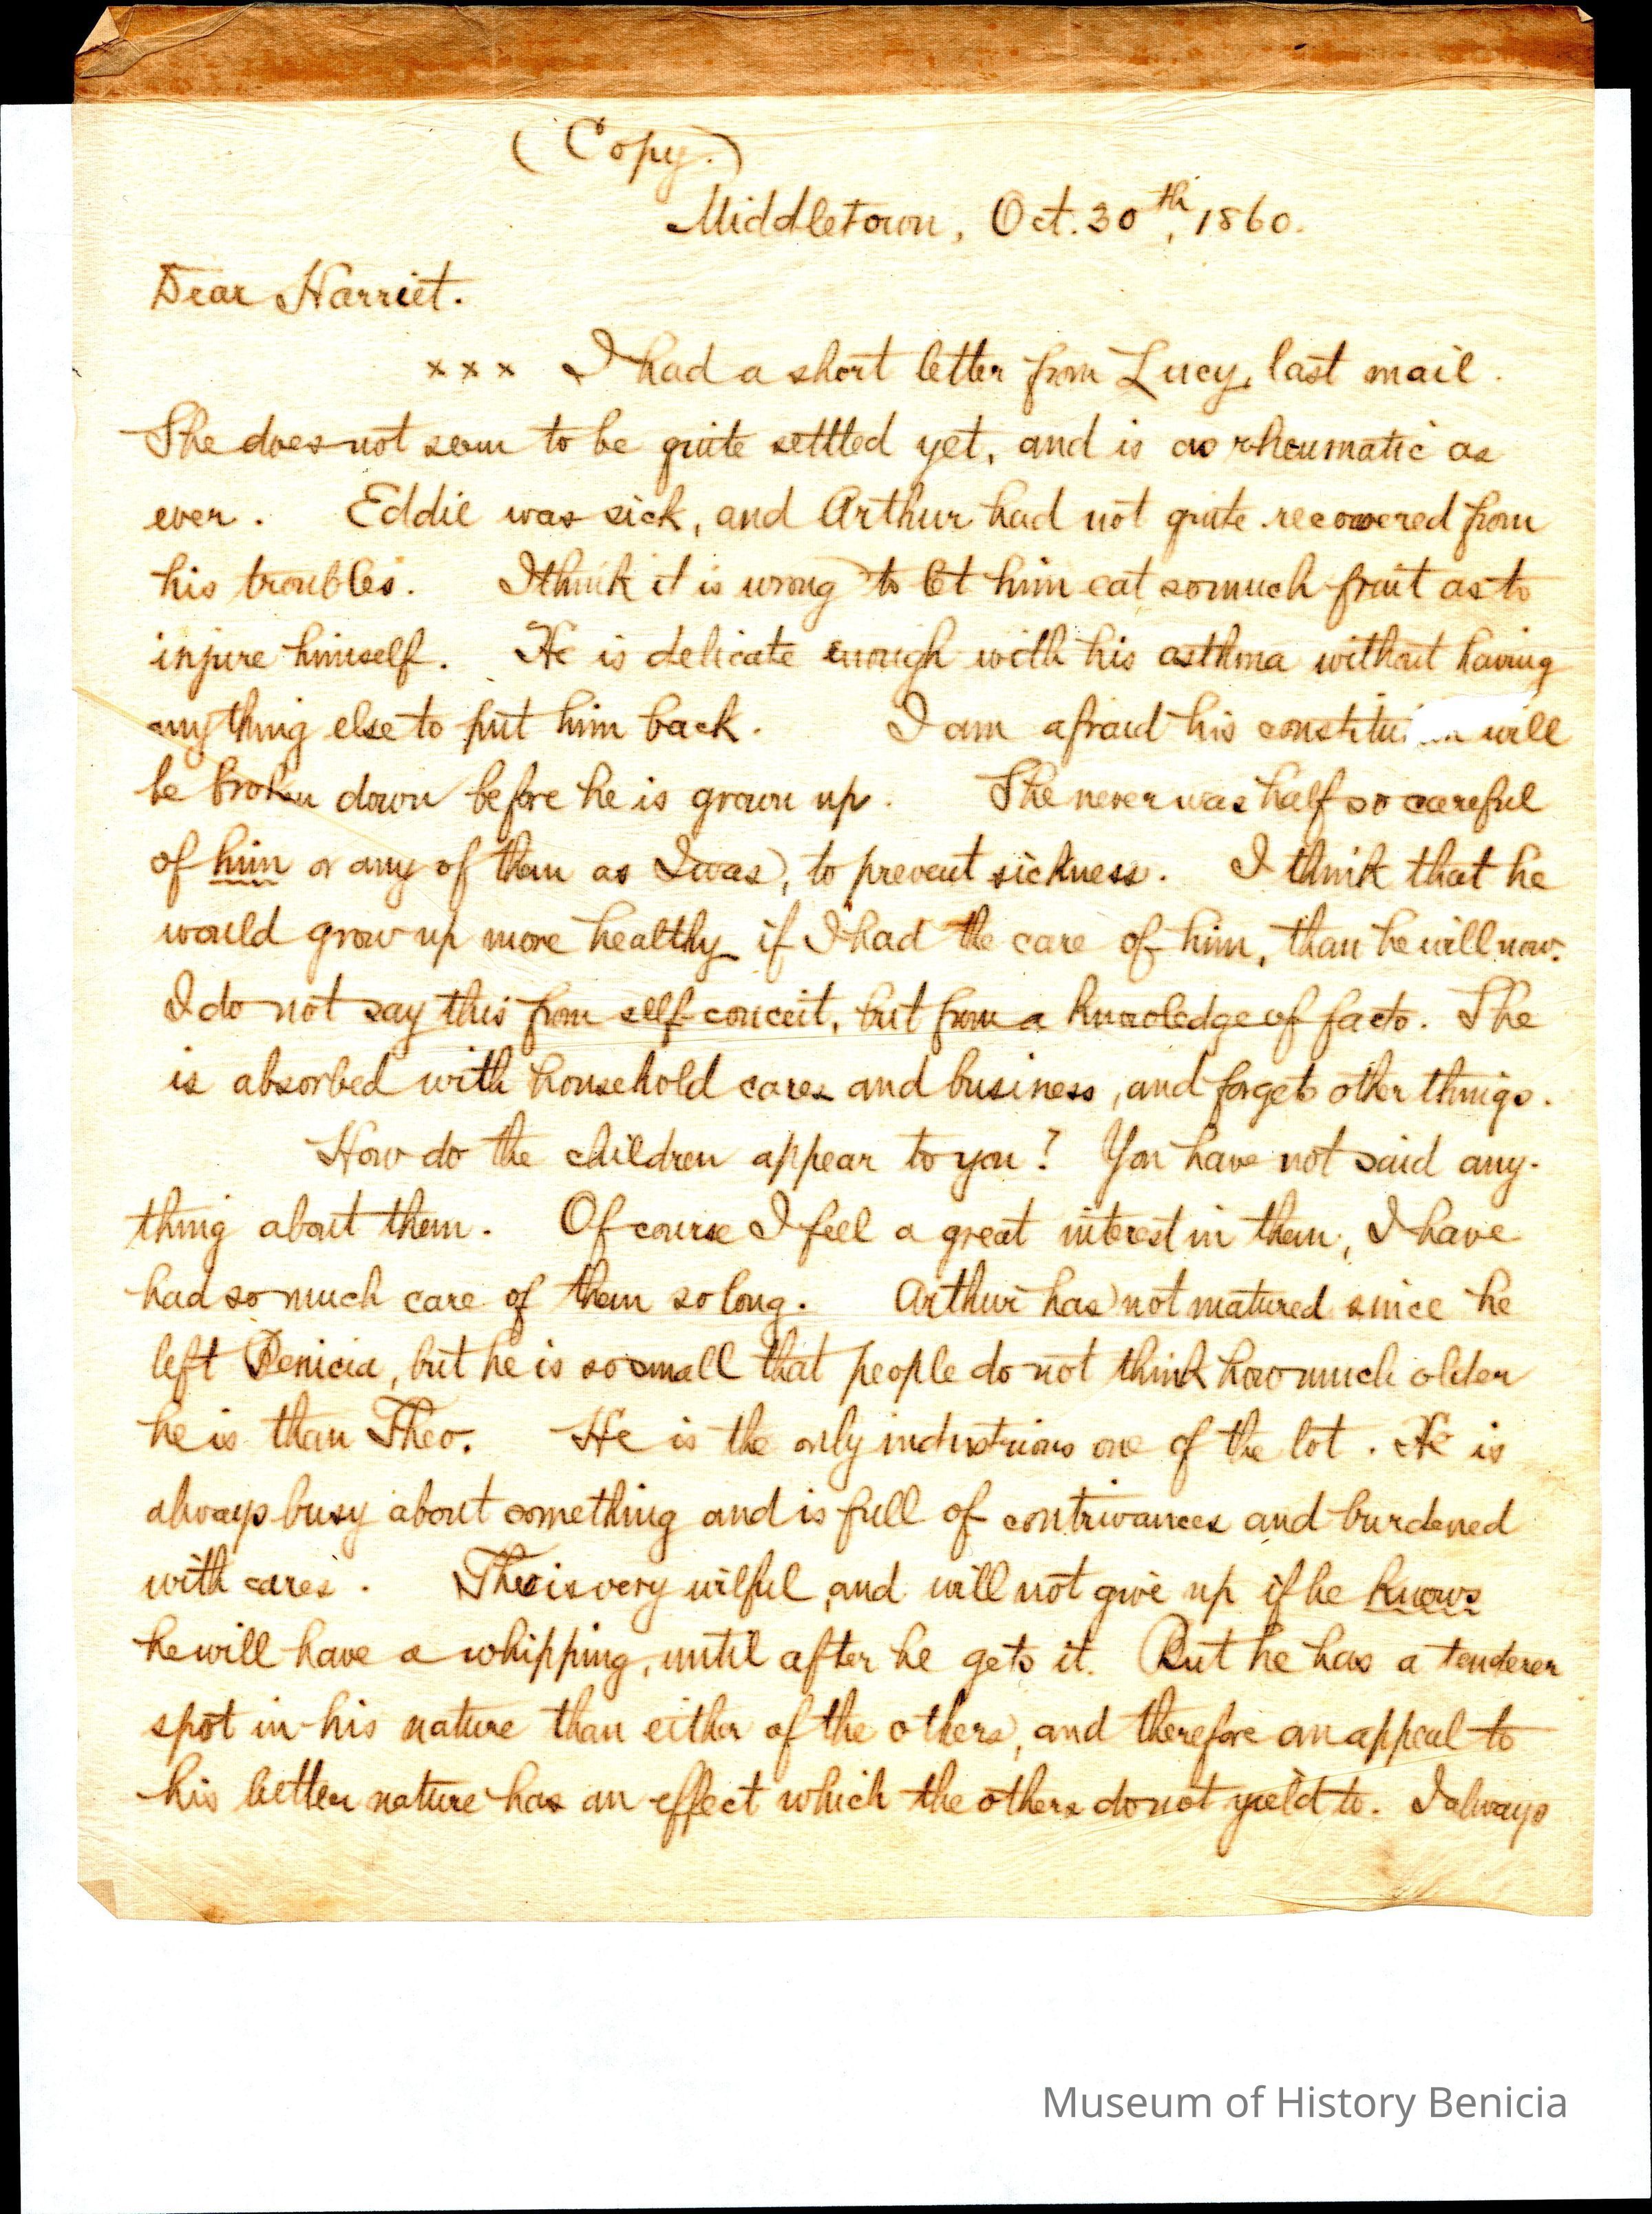 (Copy.)
Middletown, Oct. 30th, 1860.
Dear Harriet.
x x x I had a short letter from Lucy, last mail.
She does not seem to be quite settled yet, and is as rheumatic as
ever. Eddie was sick, and Arthur had not quite recovered from
his troubles. I think it is wrong to let him eat so much fruit as to
injure himself. He is delicate enough with his asthma without having
anything else to put him back. I am afraid his will
be broken down before he is grown up. She never was half so careful
of him or any of them as I was, to prevent sickness. I think that he
would grow up more healthy if I had the care of him, than he will now.
I do not say this from self-conceit, but from a knowledge of facts. She
is absorbed with household cares and business, and forgets other things.
How do the children appear to you? You have not said any-
thing about them. Of course I feel a great interest in them, I have
had so much care of them so long. Arthur has not matured since he
left Benicia, but he is so small that people do not think how much older
he is than Theo. He is the only industrious one of the lot. He is
always busy about something and is full of contrivances and burdened
with cares. Theo is very wilful, and will not give up if he knows
he will have a whipping, until after he gets it. But he has a tenderer
spot in his nature than either of the others, and therefore an appeal to
his better nature has an effect which the others do not yield to. I always
Museum of History Benicia